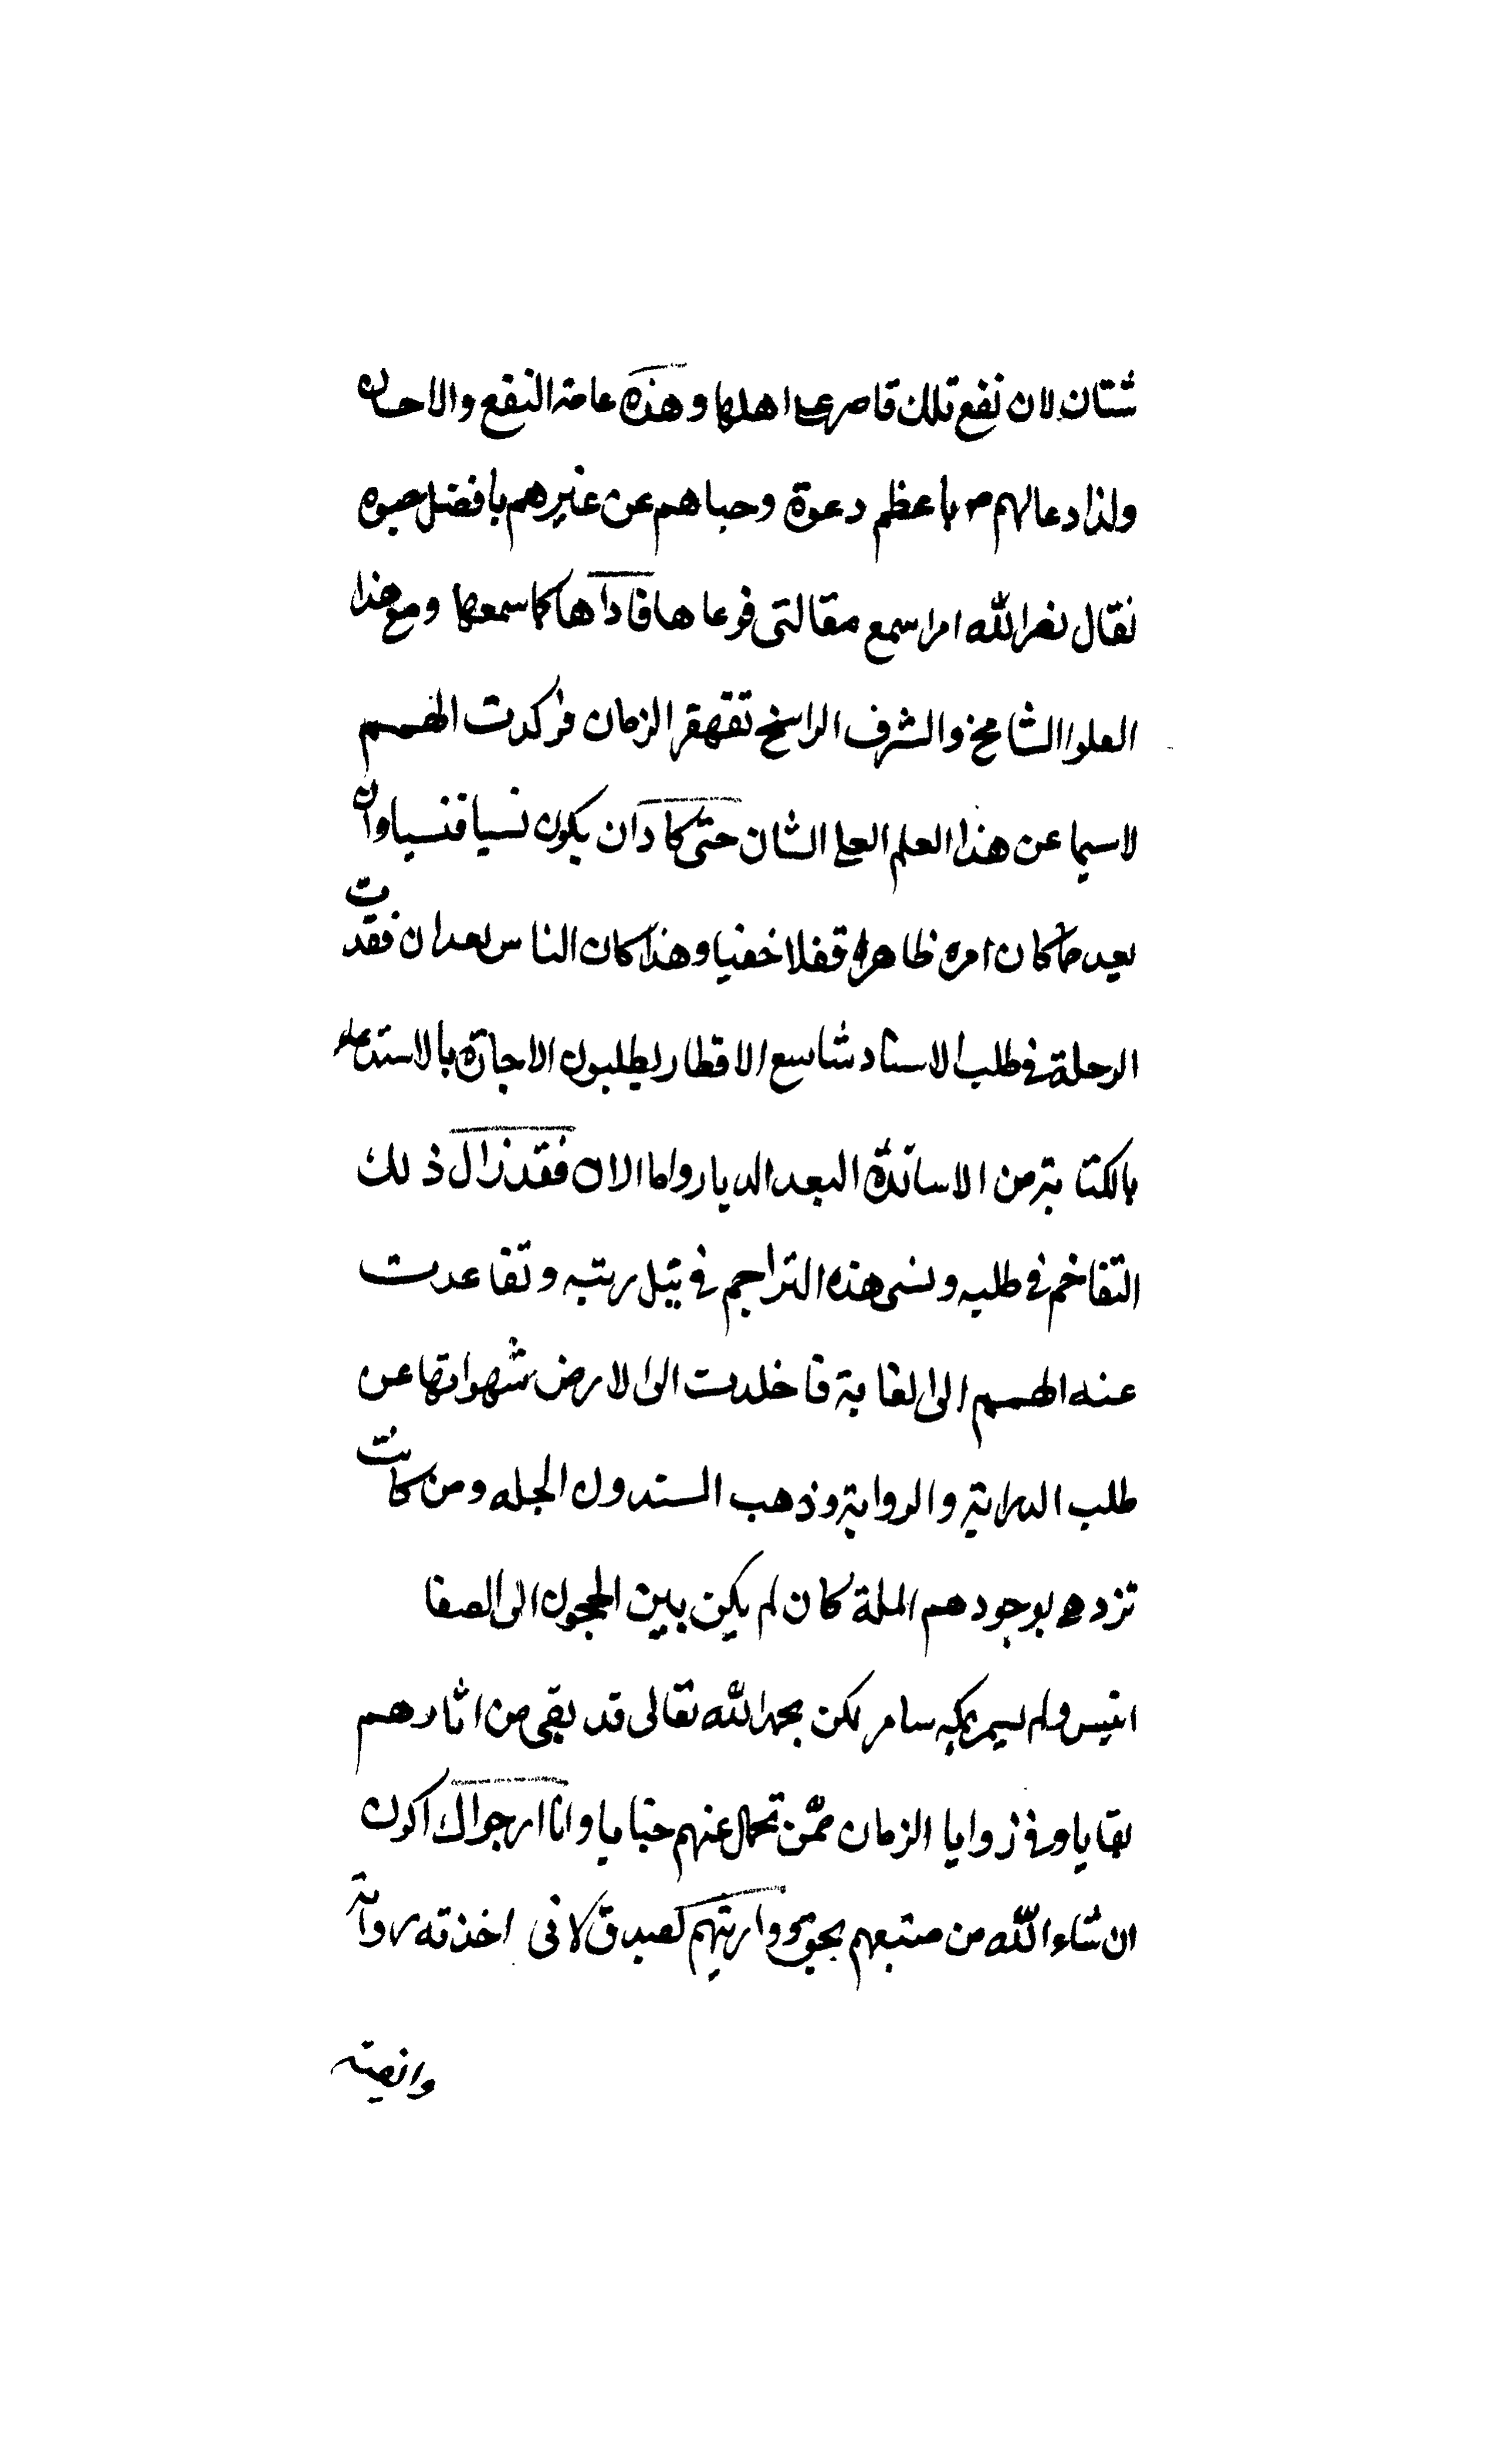 شتان لان نفع تلك قاصر على اهلها وهذه عامة النفع والاحسان
ولذا دعا لهم ص باعظم دعوة وحباهم عن غيرهم بافضل حبوه
فقال نضر الله امرا سمع مقالتى فوعاها فاداها كما سمعها ومع هذا
العلوا الشامخ والشرف الراسخ تقهقر الزمان وركدت الهمم
لاسيما عن هذا العلم العلى الشان حتى كاد ان يكون نسيا منسيا وان
بعيد ما كان امره ظاهرا قفلا خفيا وهذا كان الناس بعد ان فقدت
الرحلة فى طلب الاسناد شاسع الاقطار يطلبون الاجازة بالاستدعاء
بالكتابة من الاساتذة البعد الديار واما الان فقد زال ذلك
التفاخم فى طلبه ونسى هذه التراجم فى نيل رتبه وتقاعدت
عنه الهمم الى الغاية فاخلدت الى الارض شهواتها عن
طلب الدراية والرواية وذهب المسندون الجله ومن كانت
تزدهى بوجودهم الملة كان لم يكن بين الحجون الى الصفا
انيس ولم يسمر بمكه سامر لكن بحمد الله تعالى قد بقى من اثارهم
بقايا وفى زوايا الزمان ممن تحمل عنهم خبايا وانا ارجو ان اكون
ان شاء الله من متبعهم بحق ووارثيهم بصدق لانى اخذته رواية